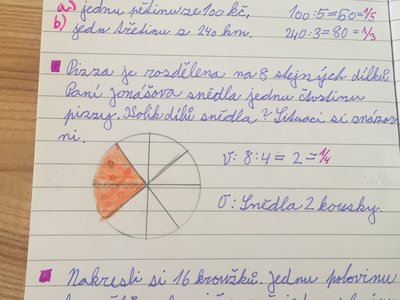 a) jednu pětinu ze 100 kč, 100:5=50=1/5
b) jedn třetinu z 240 km. 240:3=80=1/3
Pizza je rozdělena na 8 stejných dílků.
Paní Jonášova snědla jednu čtvrtinu
pizzy. Kolik dílů snědla? Situaci si znázor
ni.
V: 8:4=2=1/4
O: Snědla 2 kousky.
Nakresli si 16 kroužků. Jednu polovinu